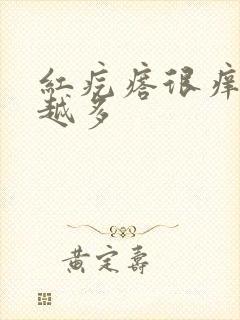 红疙瘩很痒
越多
黄定寿